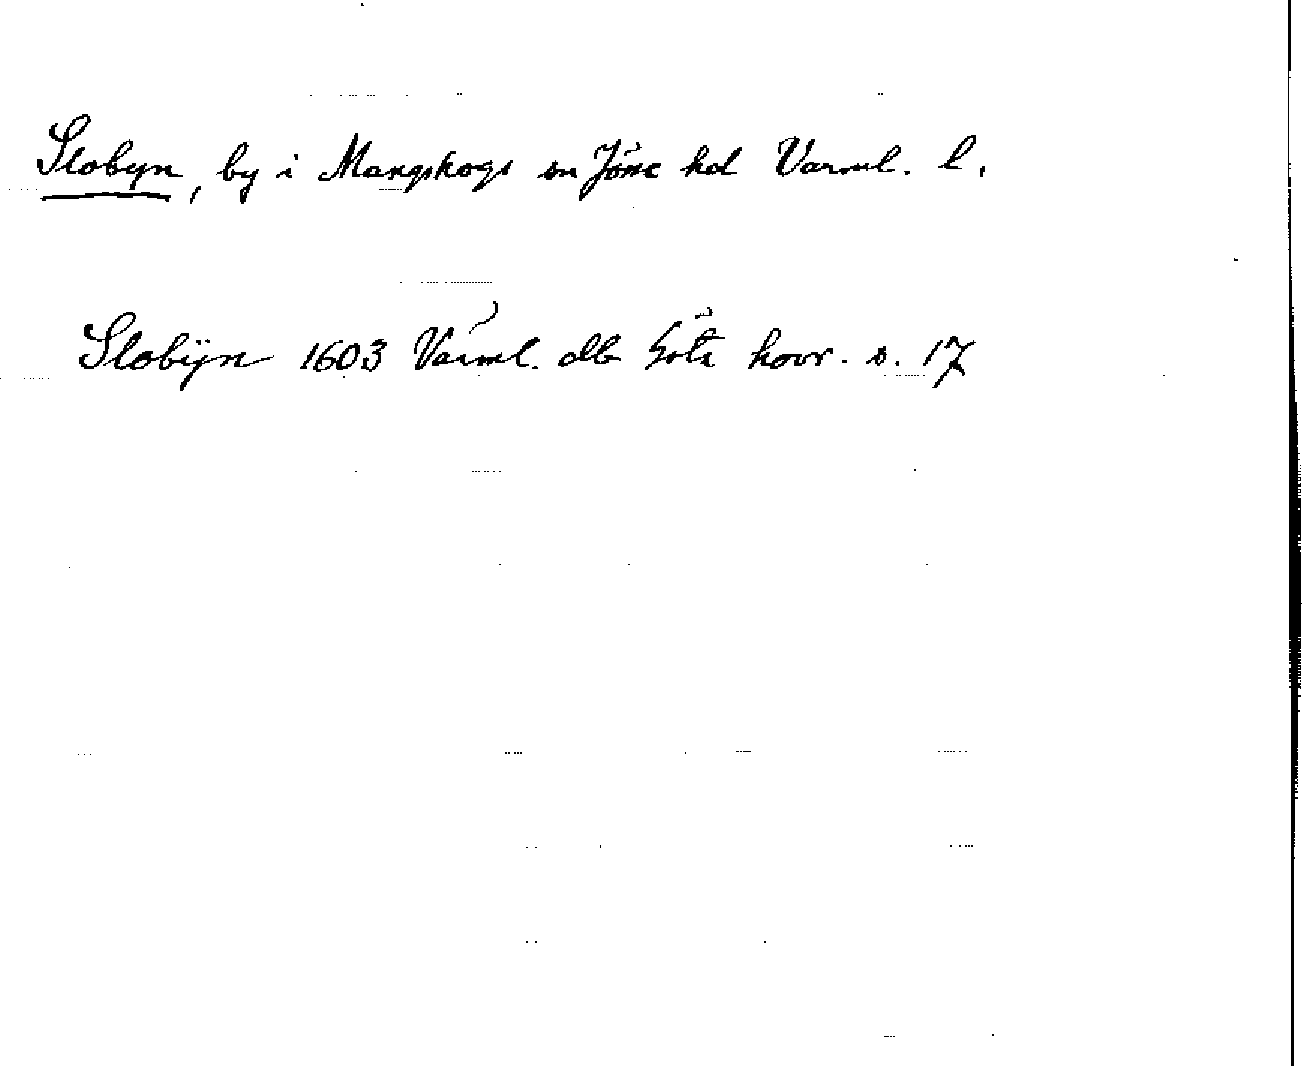 Slobyn, by i Mangskogs sn Jösse hd Värml. l.
Slobÿn 1603 Värml. dlb Göta hovr. s. 17